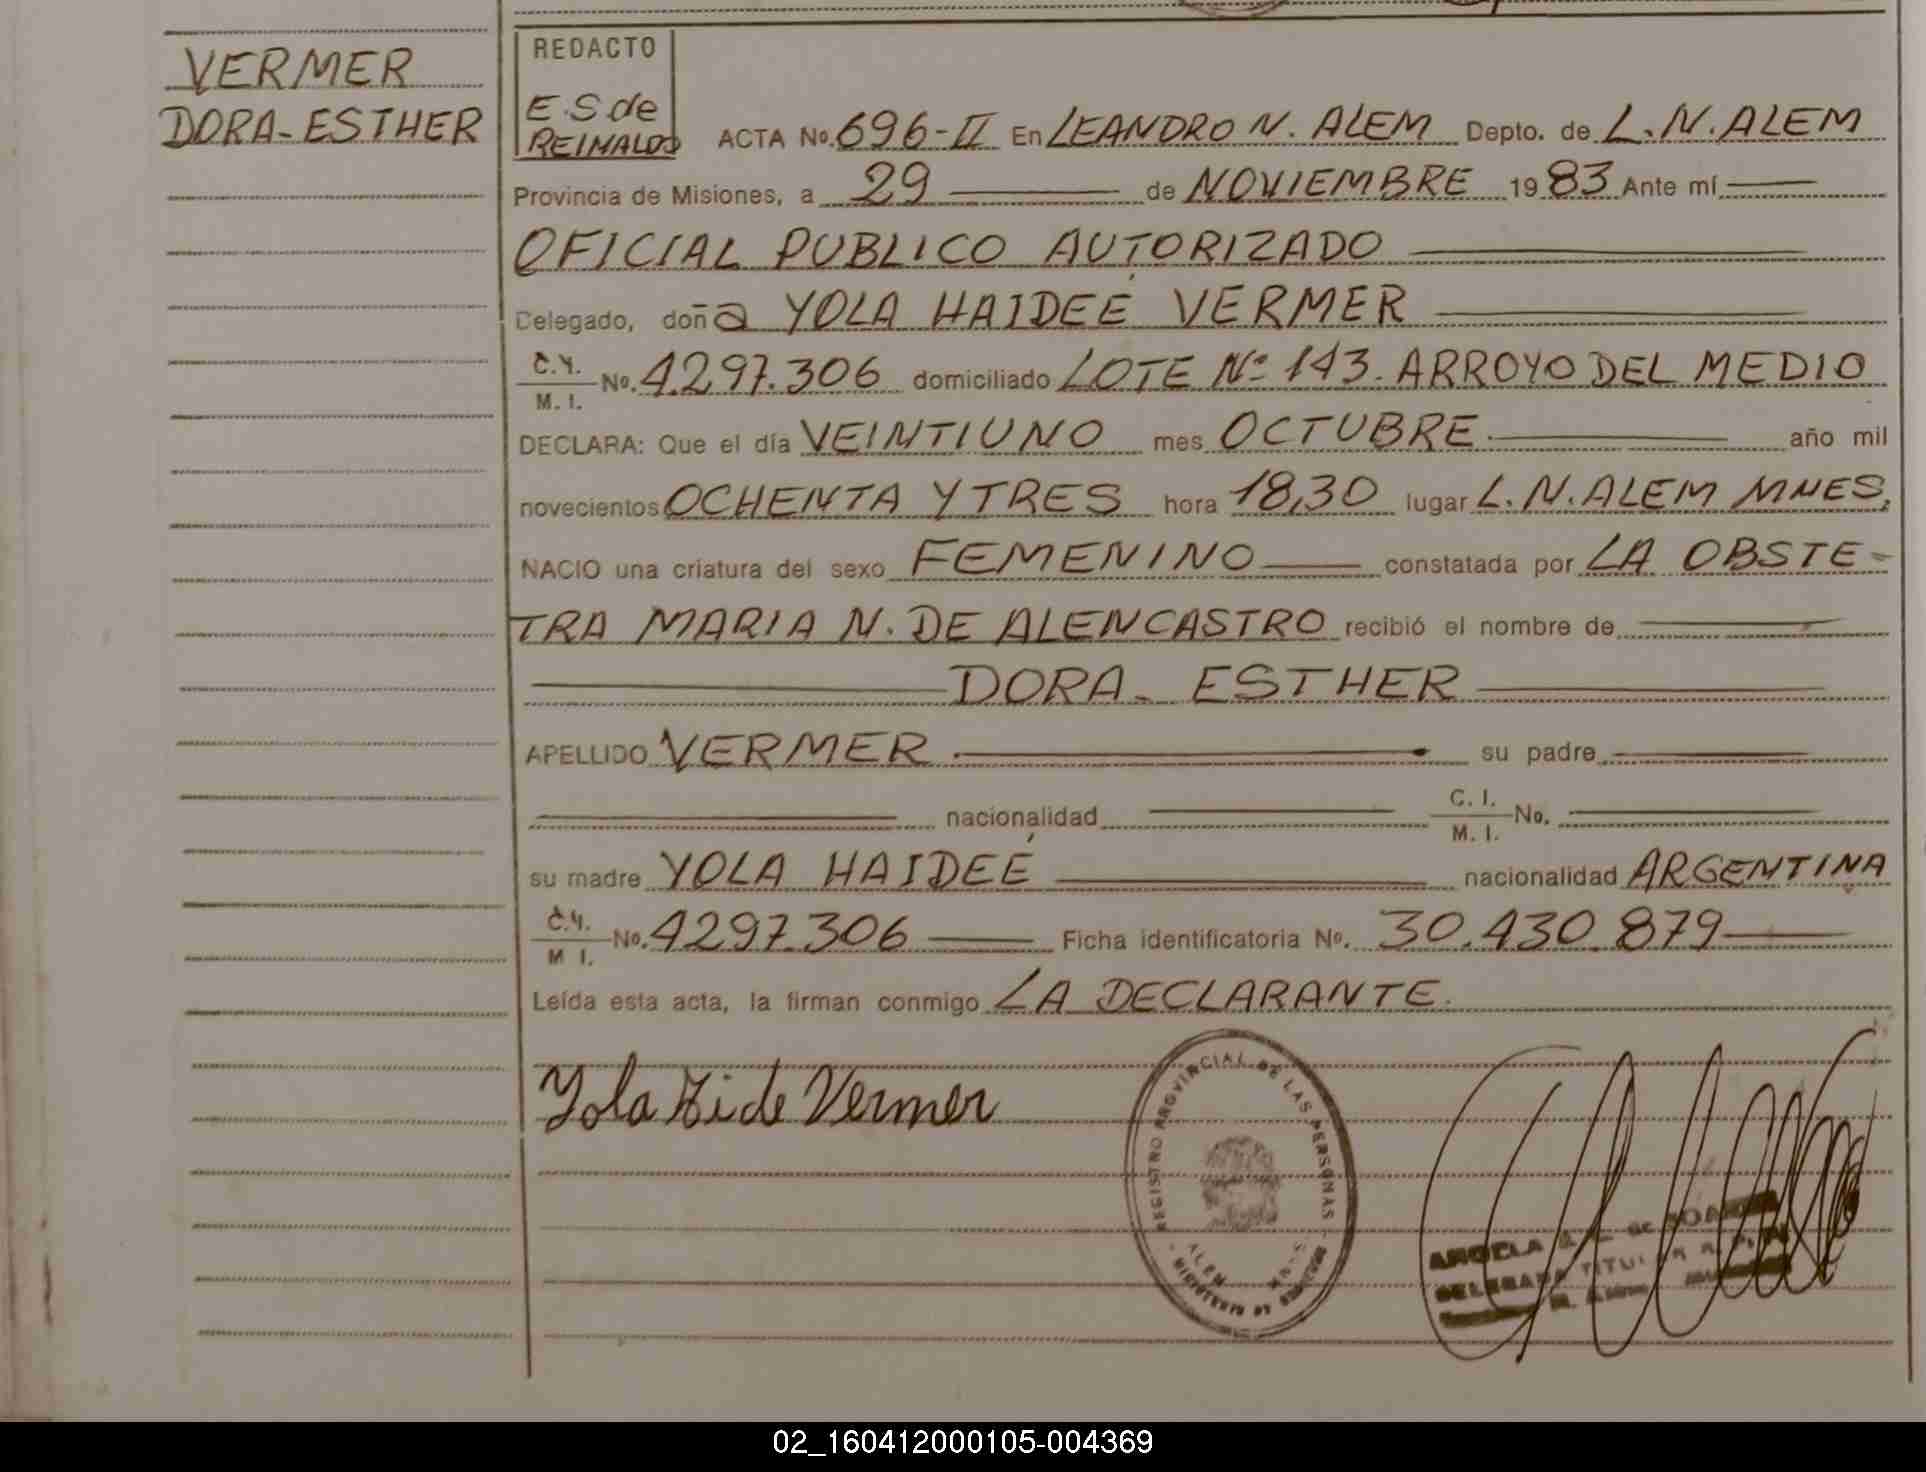 VERMER
DORA-ESTHER
REDACTO
E.S de
REINALDO
ACTA No. 696-II En LEANDRO N. ALEM Depto. de L.N.ALEM
Provincia de Misiones, a 29 de NOVIEMBRE 1983 Ante mí
OFICIAL PUBLICO AUTORIZADO
Delegado, doña YOLA HAIDEÉ VERMER
C.Y.
M. I.
No. 4.297.306 domiciliado LOTE Nº 143. ARROYO DEL MEDIO
DECLARA: Que el día VEINTIUNO mes OCTUBRE. año mil
novecientos OCHENTA Y TRES hora 18,30 lugar L.N.ALEM MNES,
NACIO una criatura del sexo FEMENINO constatada por LA OBSTE-
TRA MARIA N. DE ALENCASTRO recibió el nombre de
DORA - ESTHER
APELLIDO VERMER su padre
nacionalidad C. I.
M. I.
No.
su madre YOLA HAIDEÉ nacionalidad ARGENTINA
C.Y.
M I.
No. 4297.306 Ficha identificatoria No. 30.430.879
Leída esta acta, la firman conmigo LA DECLARANTE.
Yola Vermer
REGISTRO PROVINCIAL DE LAS PERSONAS
ALEM MNES
ANGELA de
DELEGADA TITULAR R.P.
N. Alem
02_160412000105-004369